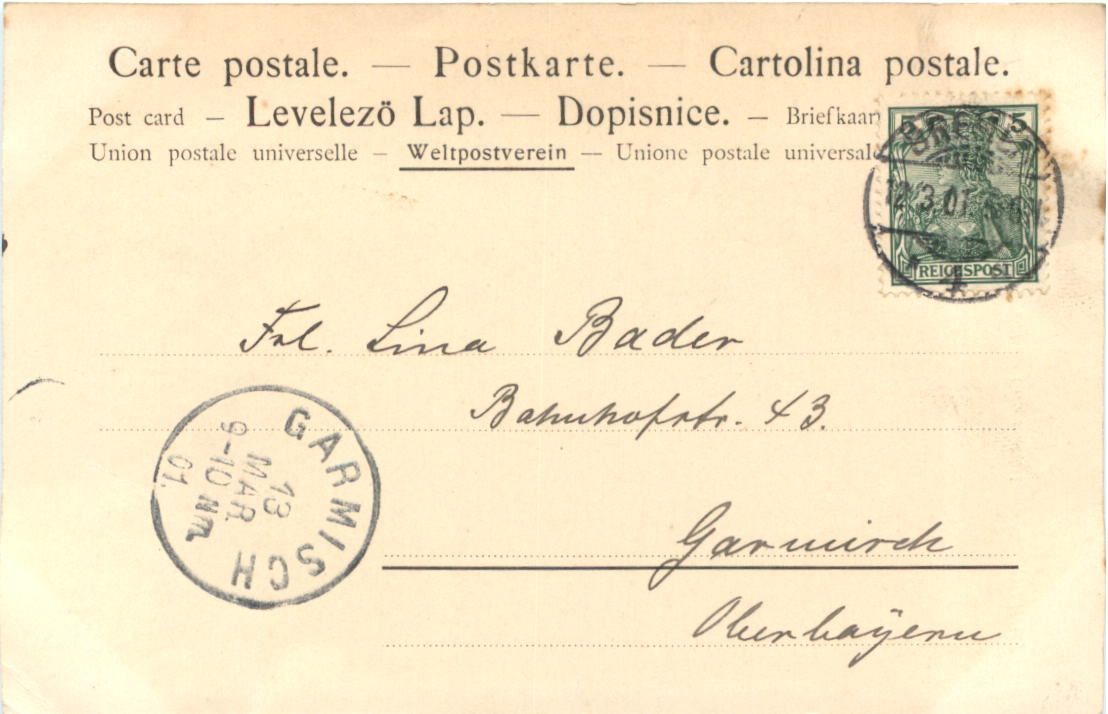 Carte postale. — Postkarte. — Cartolina postale.
Post card – Levelezö Lap. — Dopisnice. – Briefkaar
Union postale universelle – Weltpostverein — Unione postale universal
5 5
12 3 01
REICHSPOST
4
Frl. Lina Bader
Bahnhofstr. 43.
GARMISCH
13
MAR.
9-10 Nm.
01.
Garmisch
Oberbayern